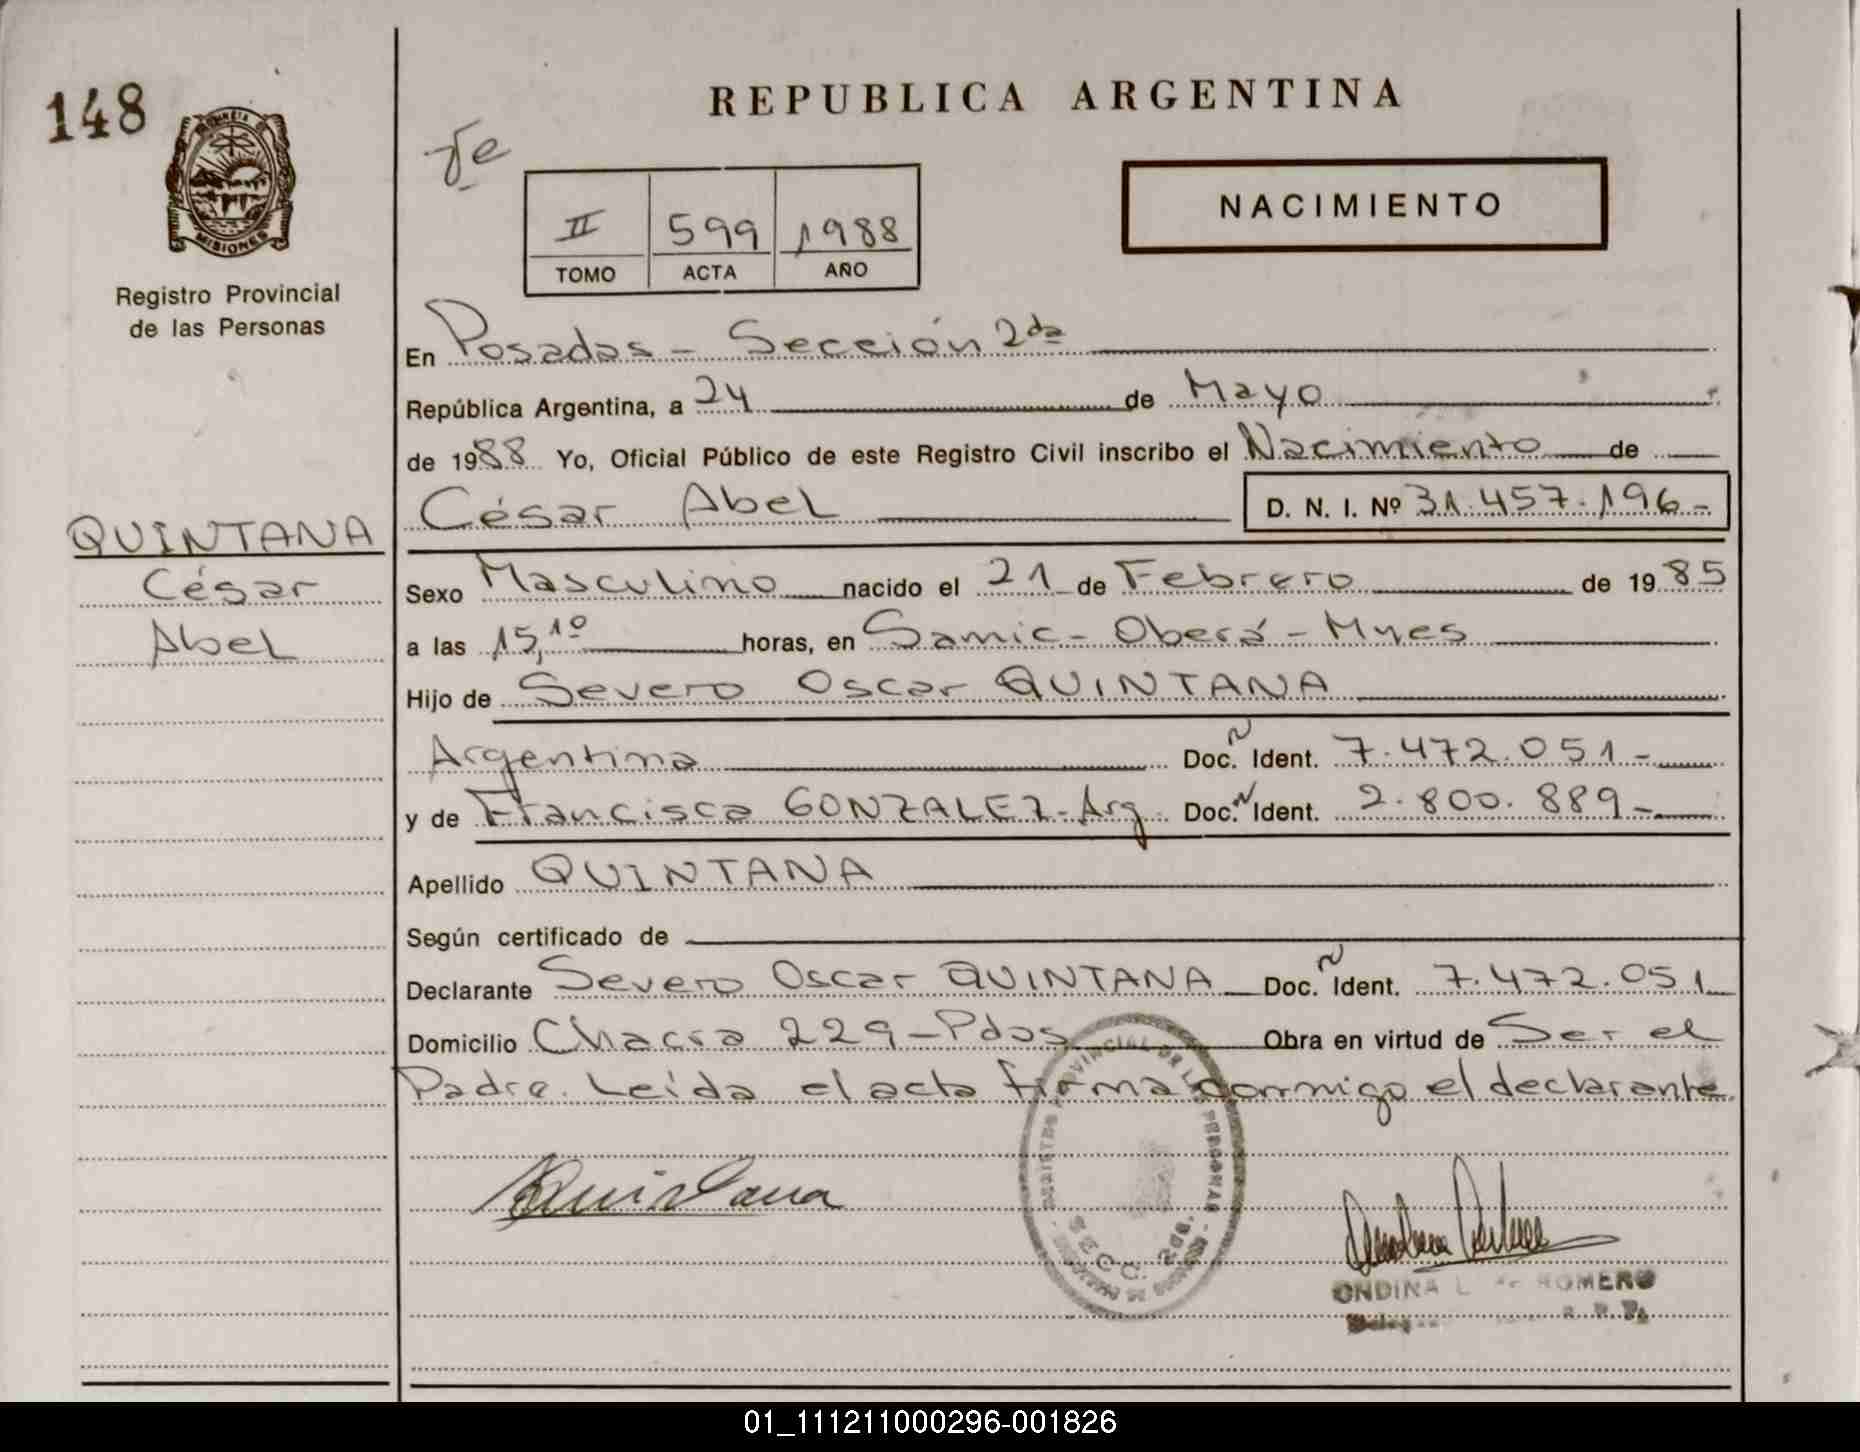 148
REPUBLICA ARGENTINA
II 599 1988
TOMO ACTA AÑO
NACIMIENTO
MISIONES
Registro Provincial
de las Personas
QUINTANA
César
Abel
En Posadas - Sección 2da
República Argentina, a 24 de Mayo
de 1988 Yo, Oficial Público de este Registro Civil inscribo el Nacimiento de
César Abel D. N. I. Nº 31.457.196-
Sexo Masculino nacido el 21 de Febrero de 1985
a las 15,10 horas, en Samic - Oberá - Mnes
Hijo de Severo Oscar QUINTANA
Argentina Doc. N Ident. 7.472.051-
y de Francisca GONZALEZ - Arg. Doc. N Ident. 2.800.889-
Apellido QUINTANA
Según certificado de
Declarante Severo Oscar QUINTANA Doc. N Ident. 7.472.051
Domicilio Chacra 229 - Pdas Obra en virtud de Ser el
Padre. Leída el acta firma conmigo el declarante.
Quintana
SECC. 2da.
ONDINA L. ROMERO
01_111211000296-001826